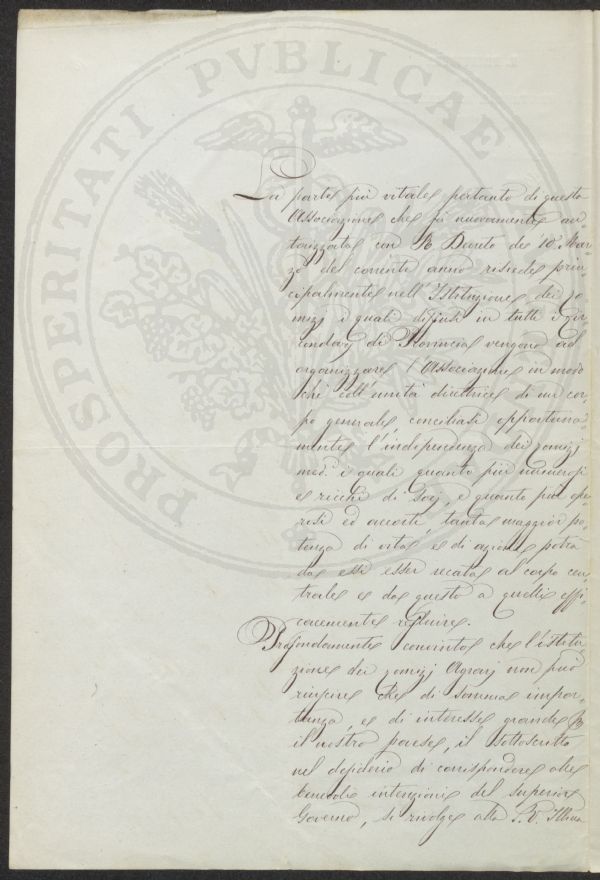 PROSPERITATI PVBLICAE
La parte più vitale pertanto di questa
Associazione che fù nuovamente au-
torizzata con R. Decreto de 10. Mar-
zo del corrente anno risiede prin-
cipalmente nell'Istituzione dei Co-
mizj i quali diffusi in tutti i Cir-
condarj di Provincia vengono ad
organizzare l'Associazione in modo
chè coll'unità direttrice di un cor-
po generale, conciliasi opportuna-
mente l'indipendenza dei Comizj
med.i i quali quanto più numerosi
e ricchi di Socj, e quanto più ope-
rosi ed accorti tanta maggior po-
tenza di vita e di azione potrà
da essi esser recata al corpo cen-
trale e da questo a quelli effi-
cacemente refluire.
Profondamente convinto che l'istitu-
zione dei Comizj Agrarj non può
riuscire che di somma impor-
tanza, e di interesse grande p
il nostro paese, il sottoscritto
nel desiderio di corrispondere alle
benevole intenzioni del superior
Governo, si rivolge alla S.V. Illma